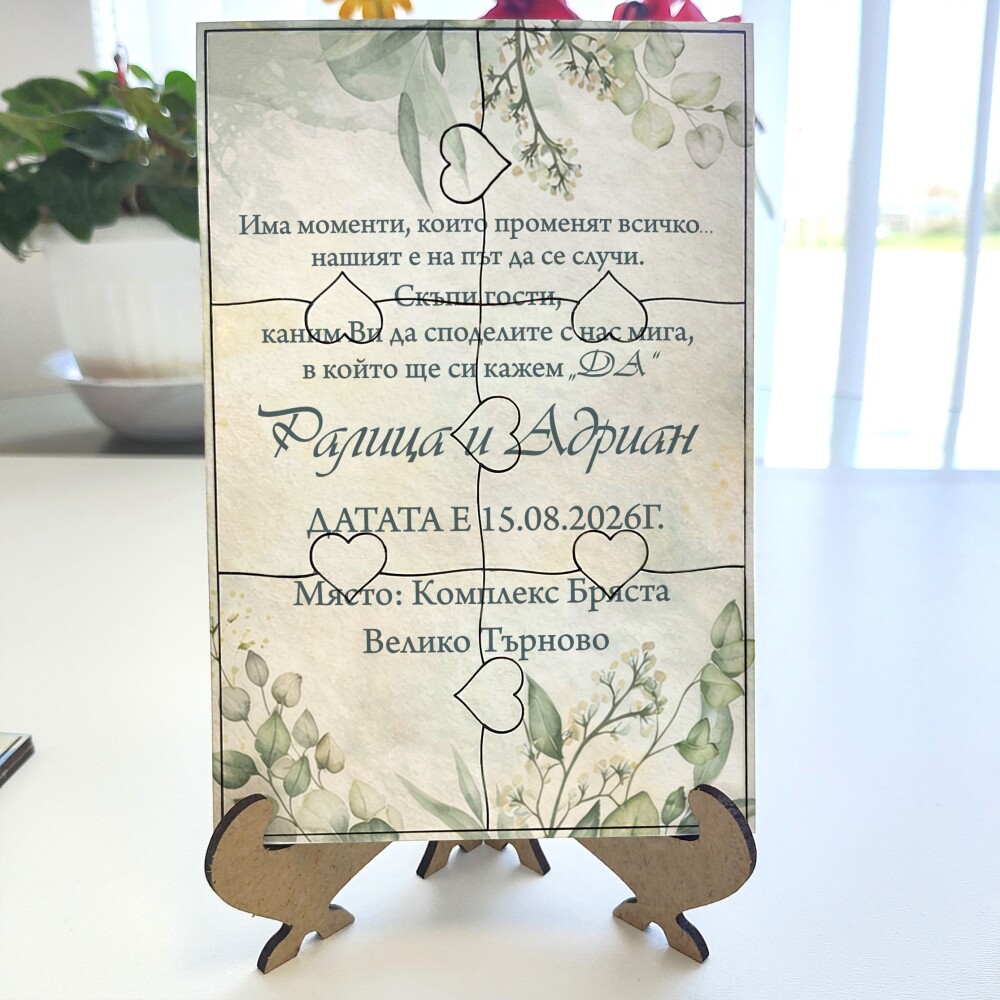 Има моменти, които променят всичко...
нашият е на път да се случи.
Скъпи гости,
каним Ви да споделите с нас мига,
в който ще си кажем „ДА“
Ралица и Адриан
ДАТАТА Е 15.08.2026Г.
Място: Комплекс Бряста
Велико Търново